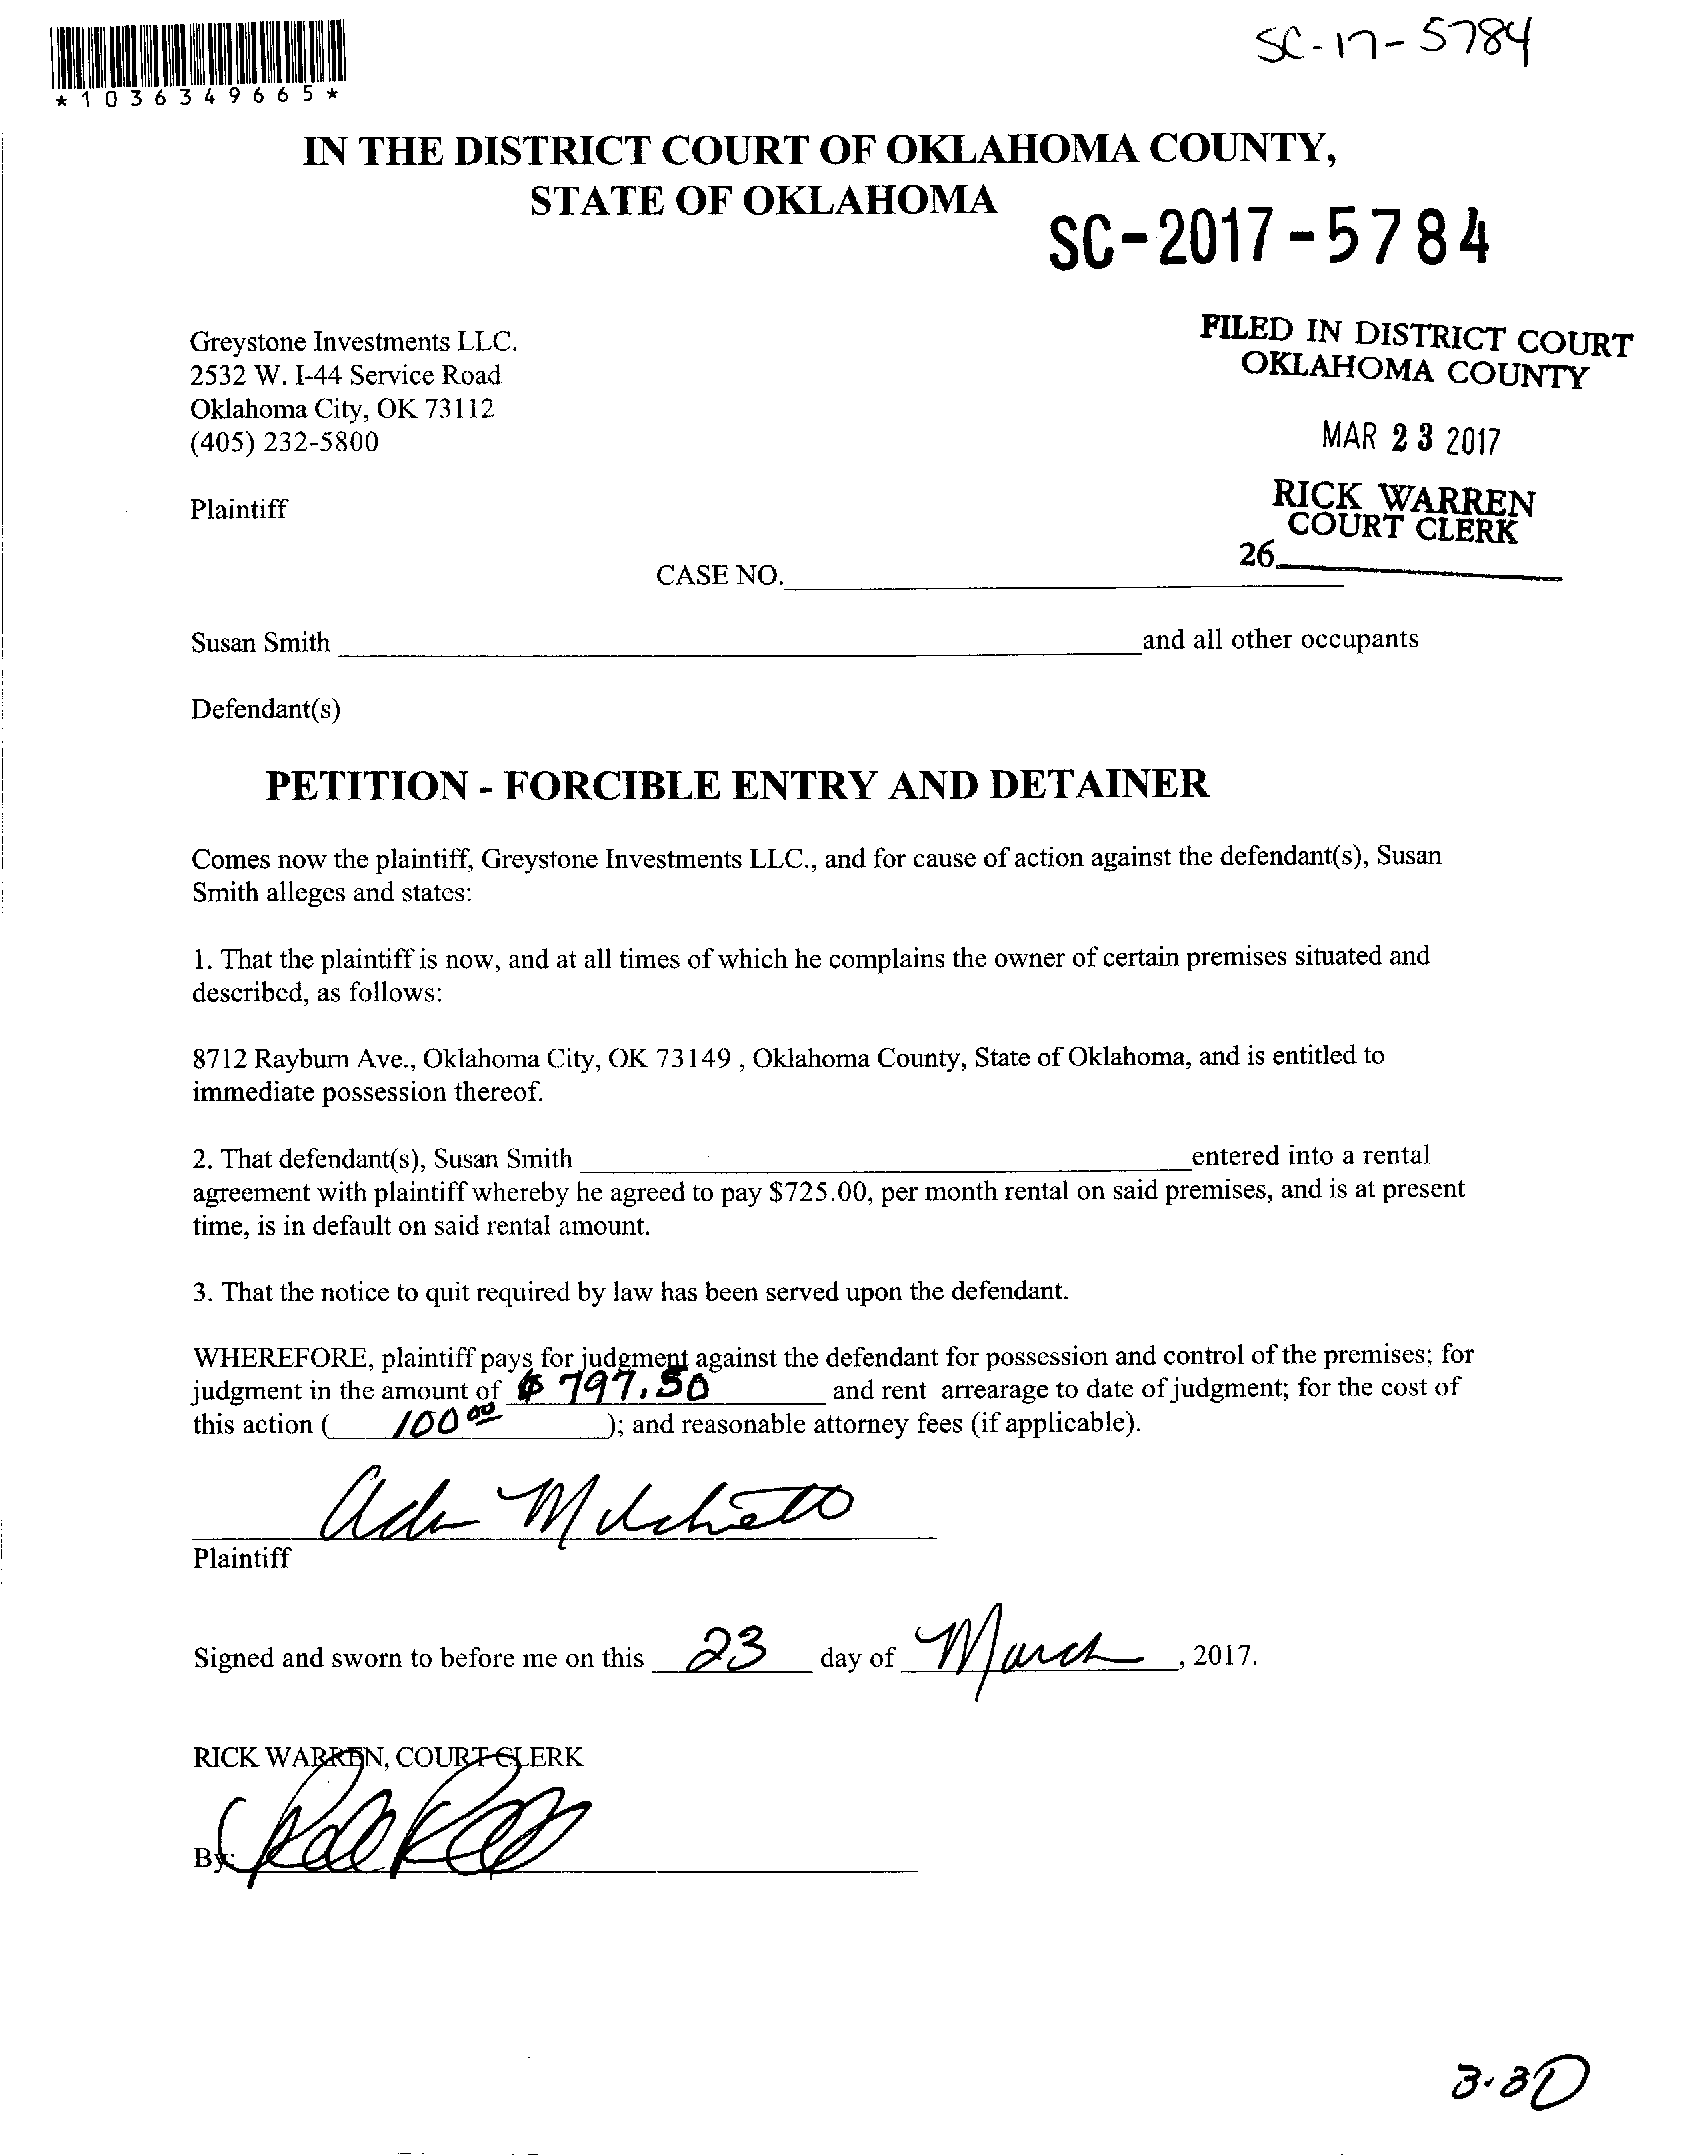 SC-17-5784
*1036349665*
IN THE DISTRICT COURT OF OKLAHOMA COUNTY,
STATE OF OKLAHOMA
SC-2017-5784
Greystone Investments LLC.
2532 W. I-44 Service Road
Oklahoma City, OK 73112
(405) 232-5800
FILED IN DISTRICT COURT
OKLAHOMA COUNTY
MAR 23 2017
RICK WARREN
COURT CLERK
26
Plaintiff
CASE NO.
Susan Smith and all other occupants
Defendant(s)
PETITION - FORCIBLE ENTRY AND DETAINER
Comes now the plaintiff, Greystone Investments LLC., and for cause of action against the defendant(s), Susan
Smith alleges and states:
1. That the plaintiff is now, and at all times of which he complains the owner of certain premises situated and
described, as follows:
8712 Rayburn Ave., Oklahoma City, OK 73149 , Oklahoma County, State of Oklahoma, and is entitled to
immediate possession thereof.
2. That defendant(s), Susan Smith entered into a rental
agreement with plaintiff whereby he agreed to pay $725.00, per month rental on said premises, and is at present
time, is in default on said rental amount.
3. That the notice to quit required by law has been served upon the defendant.
WHEREFORE, plaintiff pays for judgment against the defendant for possession and control of the premises; for
judgment in the amount of $797.50 and rent arrearage to date of judgment; for the cost of
this action ( 100 00 ); and reasonable attorney fees (if applicable).
Plaintiff
Signed and sworn to before me on this 23 day of March , 2017.
RICK WARREN, COURT CLERK
By:
3.30